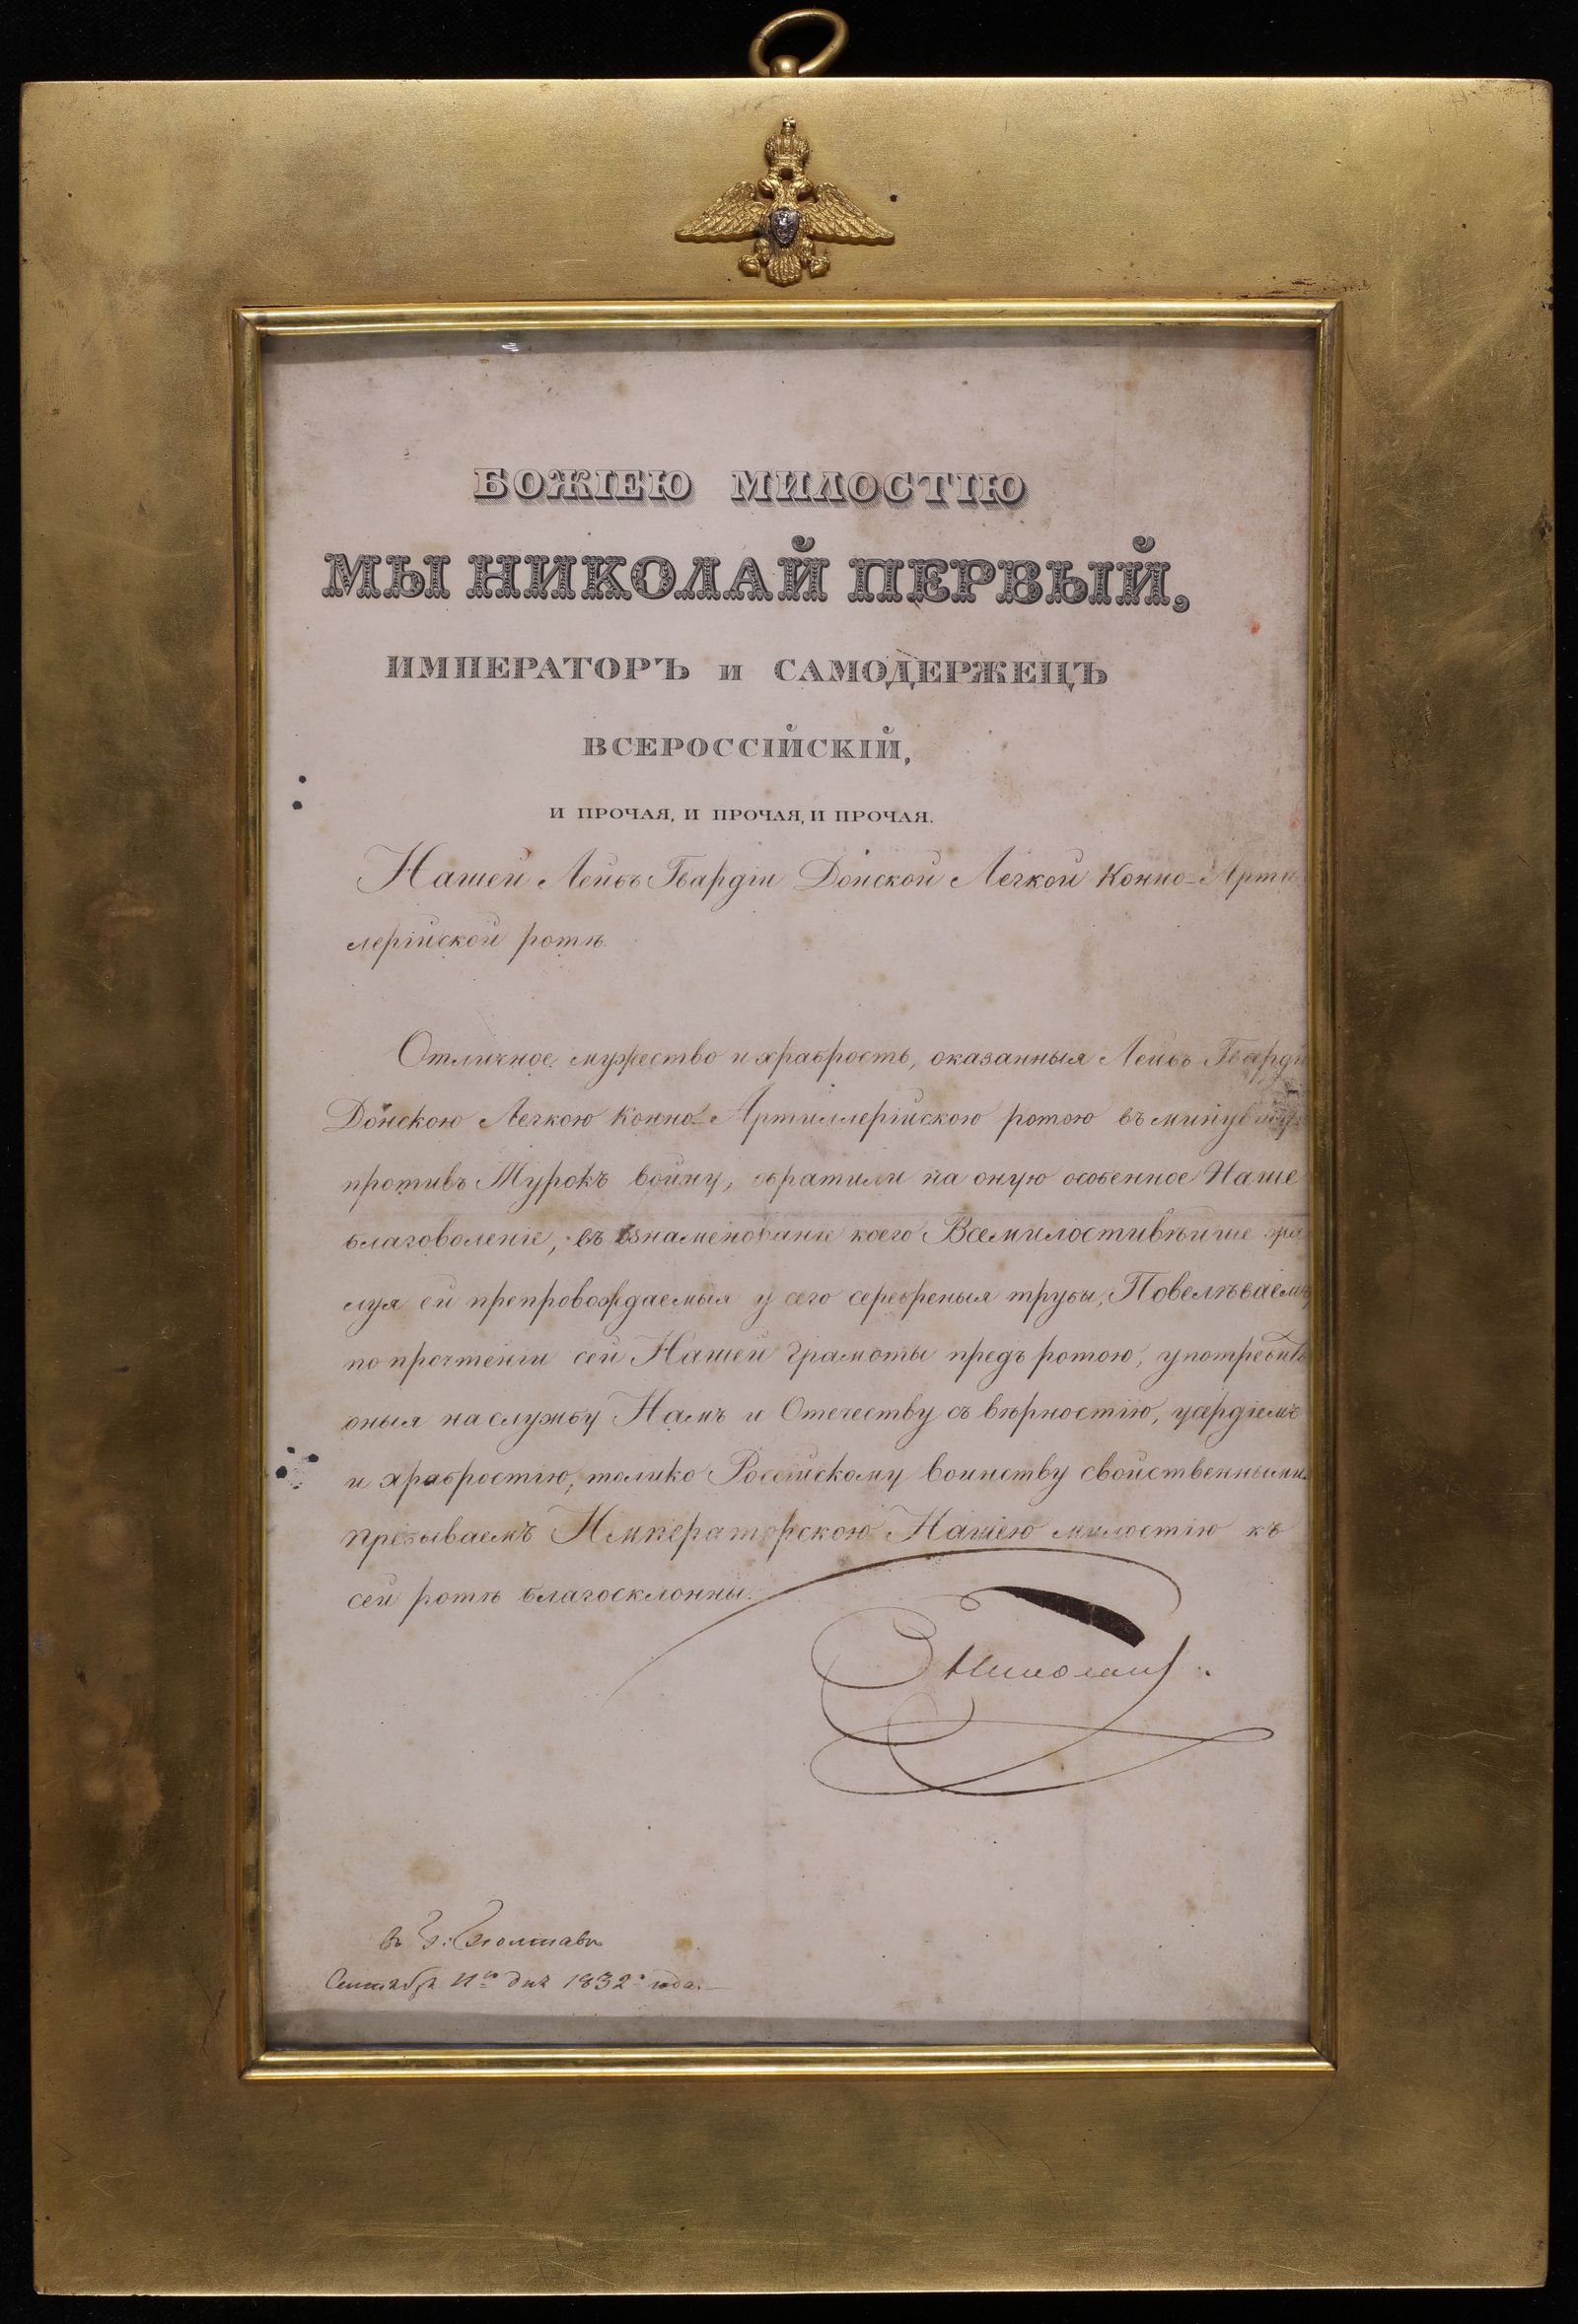 БОЖІЕЮ МИЛОСТІЮ
МЫ НИКОЛАЙ ПЕРВЫЙ,
ИМПЕРАТОРЪ и САМОДЕРЖЕЦЪ
ВСЕРОССІЙСКІЙ,
И ПРОЧАЯ, И ПРОЧАЯ, И ПРОЧАЯ.
Нашей Лейбъ Гвардіи Донской Легкой Конно-Арти
лерійской ротѣ.
Отличное мужество и храбрость, оказанныя Лейбъ Гварді
Донскою Легкою Конно-Артиллерійскою ротою въ минувшую
противъ Турокъ войну, обратили на оную особенное Наше
благоволеніе, въ ознаменованіе коего Всемилостивѣйше жа
луя ей препровождаемыя у сего серебреныя трубы, Повелѣваемъ
по прочтеніи сей Нашей грамоты предъ ротою, употребить
оныя на службу Намъ и Отечеству съ вѣрностію, усердіемъ
и храбростію, толико Россійскому воинству свойственными.
Пребываемъ Императорскою Нашею милостію къ
сей ротѣ благосклонны.
Николай
въ г. Полтавѣ
Сентября 11го дня 1832го года.